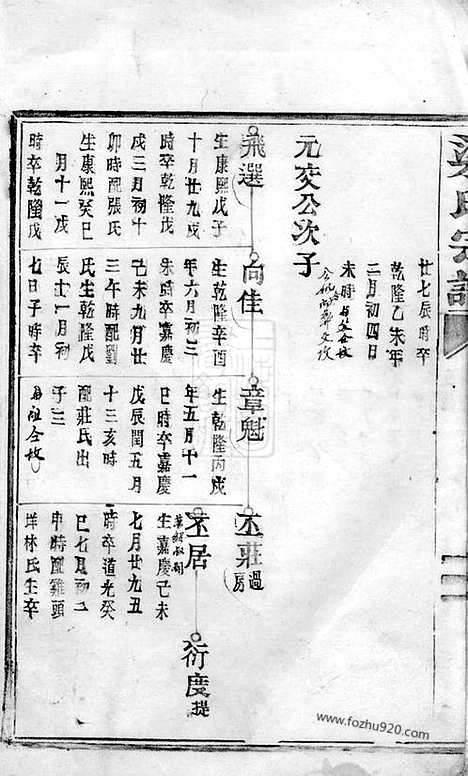 梁氏宗譜
廿七辰時卒
乾隆乙未年
二月初四日
未時
元交公次子
飛選
生康熙戊子
十月廿九戌
時卒乾隆戊
戌三月初十
卯時配張氏
生康熙癸巳
月十一戌
時卒乾隆戊
尚佳
生乾隆辛酉
年六月初三
未時卒嘉慶
己未九月廿
三午時配劉
氏生乾隆戊
辰十一月初
七日子時卒
章魁
生乾隆丙戌
年五月十一
巳時卒嘉慶
戊辰閏五月
十三亥時
配莊氏出
子三
丕莊過房
丕居
生嘉慶己未
七月廿九丑
時卒道光癸
巳七月初二
申時配雞頭
垟林氏生卒
衍度提
www.fozhu920.com